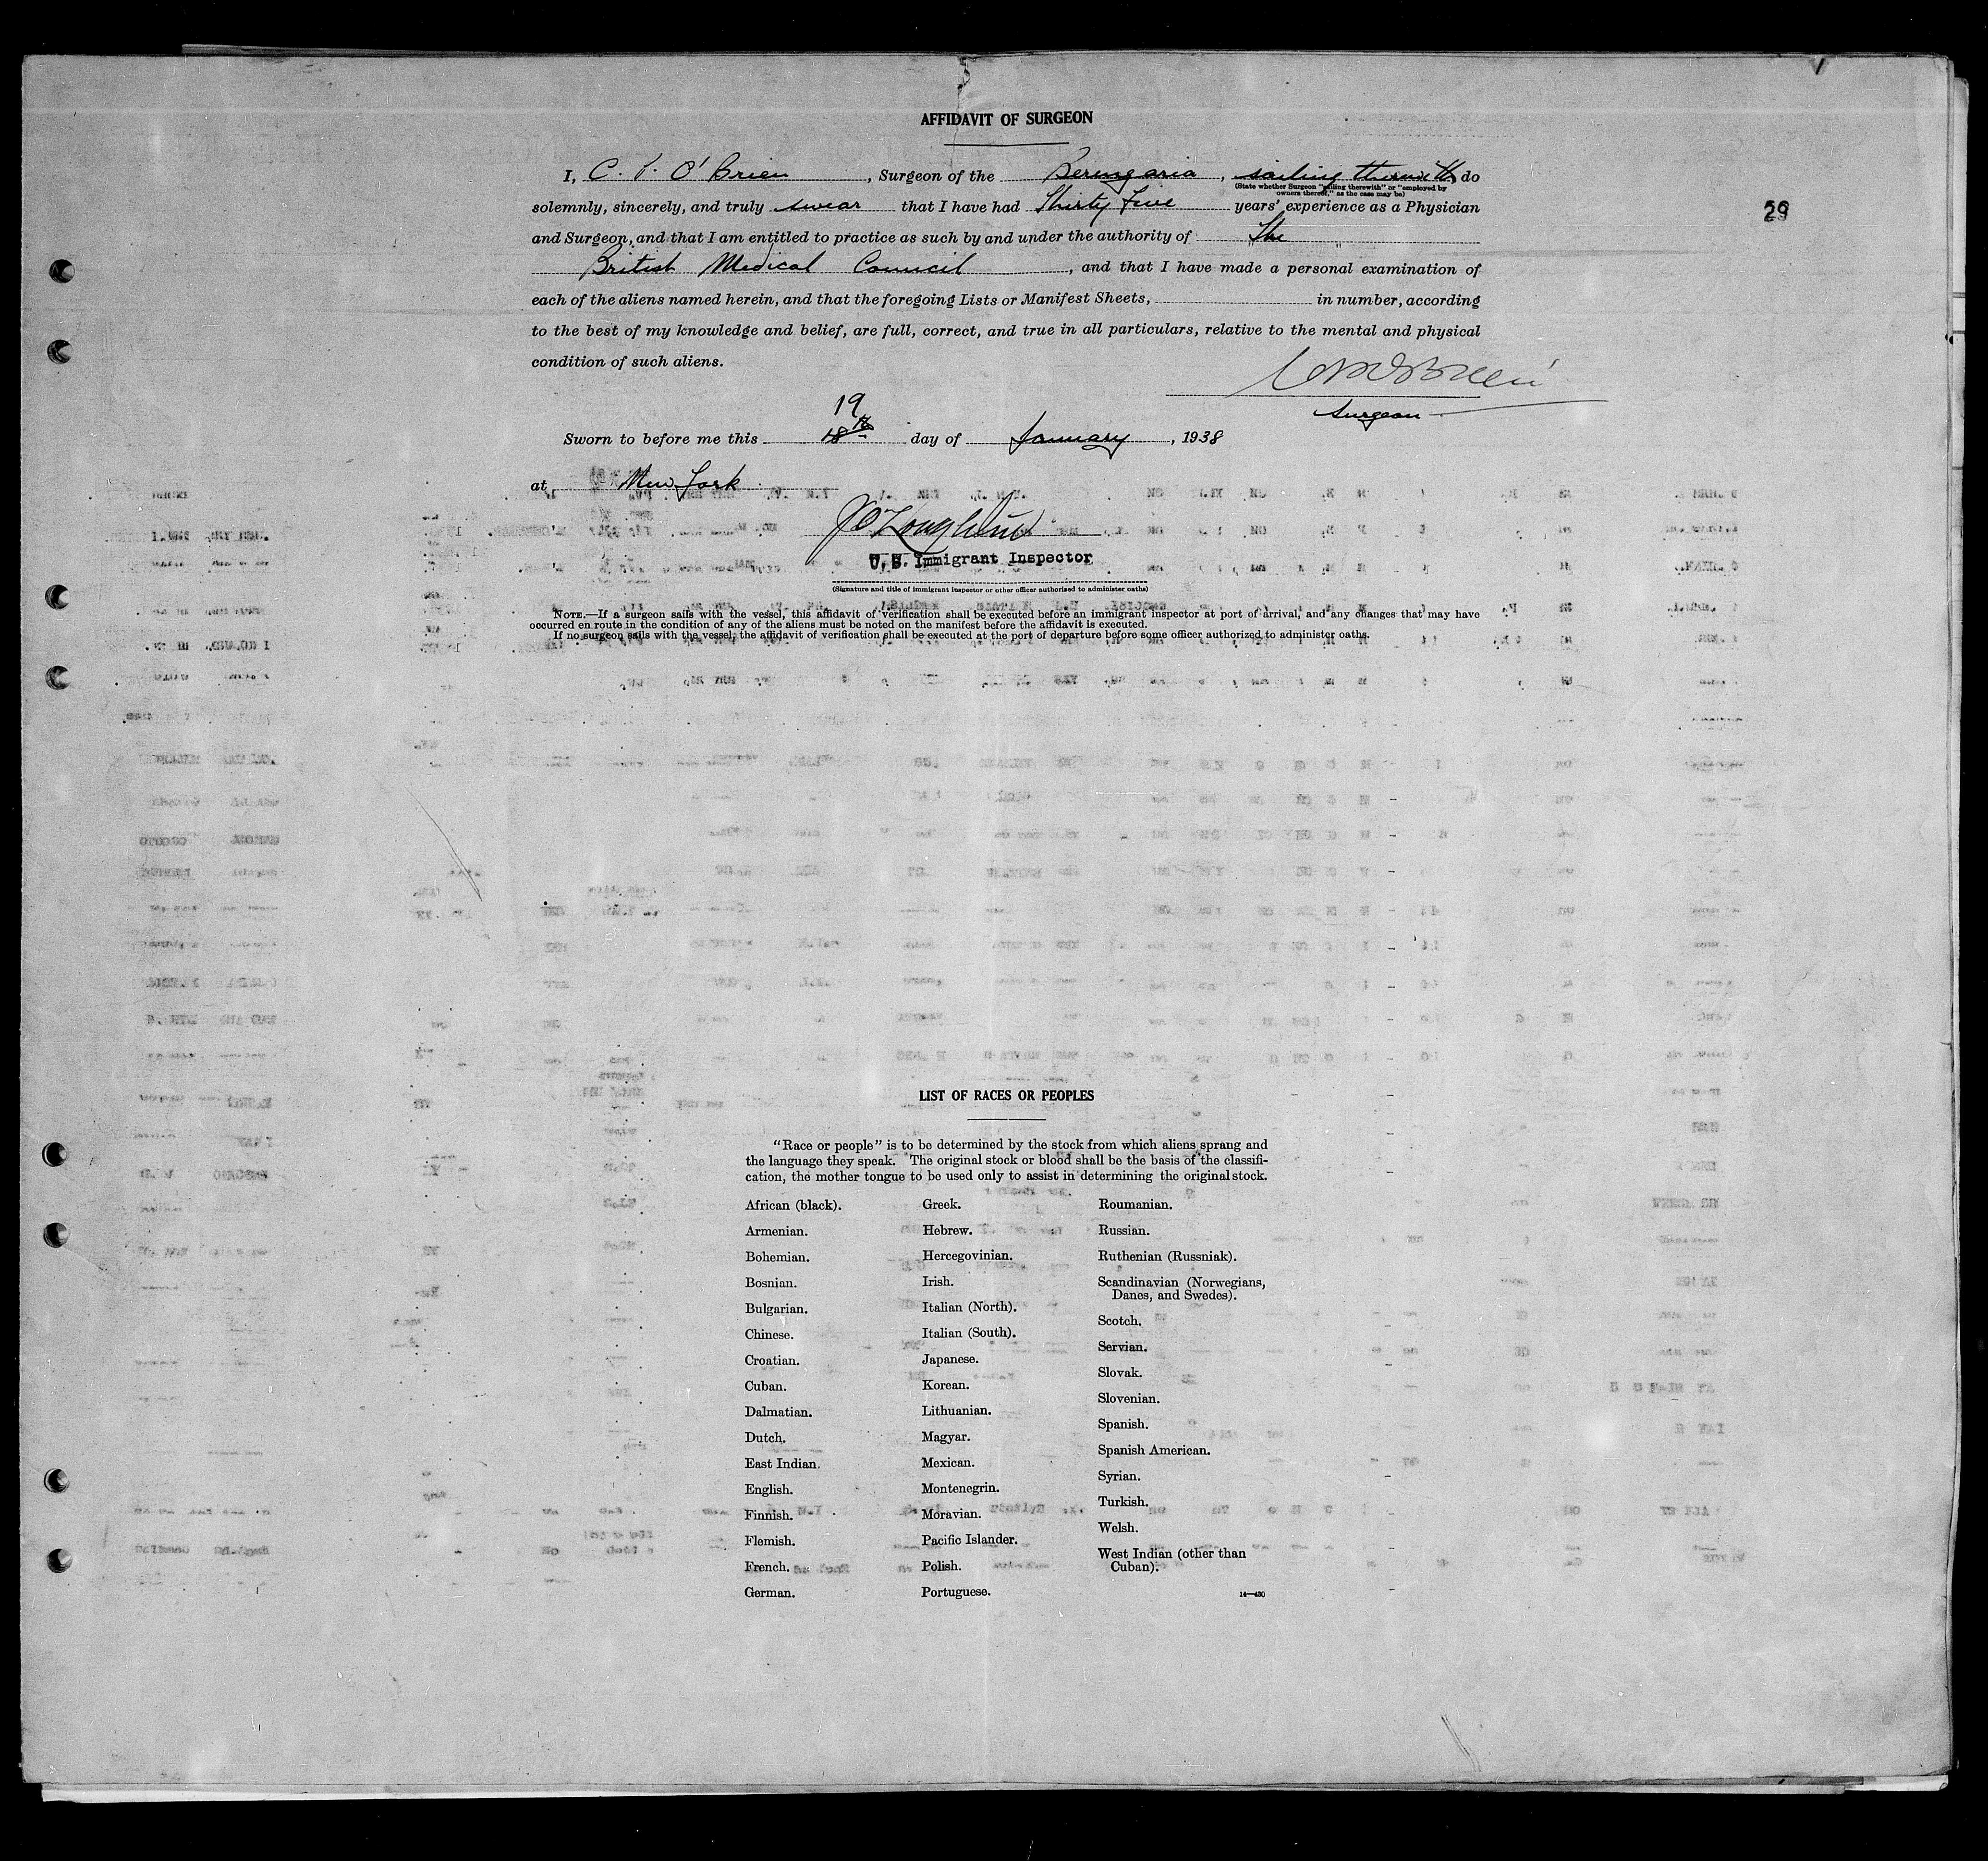 AFFIDAVIT OF SURGEON
I, C. P. O'Brien, Surgeon of the Berengaria, sailing therewith do
(State whether Surgeon "sailing therewith" or "employed by
owners thereof," as the case may be)
solemnly, sincerely, and truly swear that I have had Thirty Five years' experience as a Physician
29
and Surgeon, and that I am entitled to practice as such by and under the authority of The
British Medical Council, and that I have made a personal examination of
each of the aliens named herein, and that the foregoing Lists or Manifest Sheets, in number, according
to the best of my knowledge and belief, are full, correct, and true in all particulars, relative to the mental and physical
condition of such aliens.
Surgeon
19
Sworn to before me this 18th day of January, 1938
at New York
U.S. Immigrant Inspector
(Signature and title of immigrant inspector or other officer authorized to administer oaths)
NOTE.—If a surgeon sails with the vessel, this affidavit of verification shall be executed before an immigrant inspector at port of arrival, and any changes that may have
occurred en route in the condition of any of the aliens must be noted on the manifest before the affidavit is executed.
If no surgeon sails with the vessel, the affidavit of verification shall be executed at the port of departure before some officer authorized to administer oaths.
LIST OF RACES OR PEOPLES
"Race or people" is to be determined by the stock from which aliens sprang and
the language they speak. The original stock or blood shall be the basis of the classifi-
cation, the mother tongue to be used only to assist in determining the original stock.
African (black).
Armenian.
Bohemian.
Bosnian.
Bulgarian.
Chinese.
Croatian.
Cuban.
Dalmatian.
Dutch.
East Indian.
English.
Finnish.
Flemish.
French.
German.
Greek.
Hebrew.
Hercegovinian.
Irish.
Italian (North).
Italian (South).
Japanese.
Korean.
Lithuanian.
Magyar.
Mexican.
Montenegrin.
Moravian.
Pacific Islander.
Polish.
Portuguese.
Roumanian.
Russian.
Ruthenian (Russniak).
Scandinavian (Norwegians,
Danes, and Swedes).
Scotch.
Servian.
Slovak.
Slovenian.
Spanish.
Spanish American.
Syrian.
Turkish.
Welsh.
West Indian (other than
Cuban).
14—430